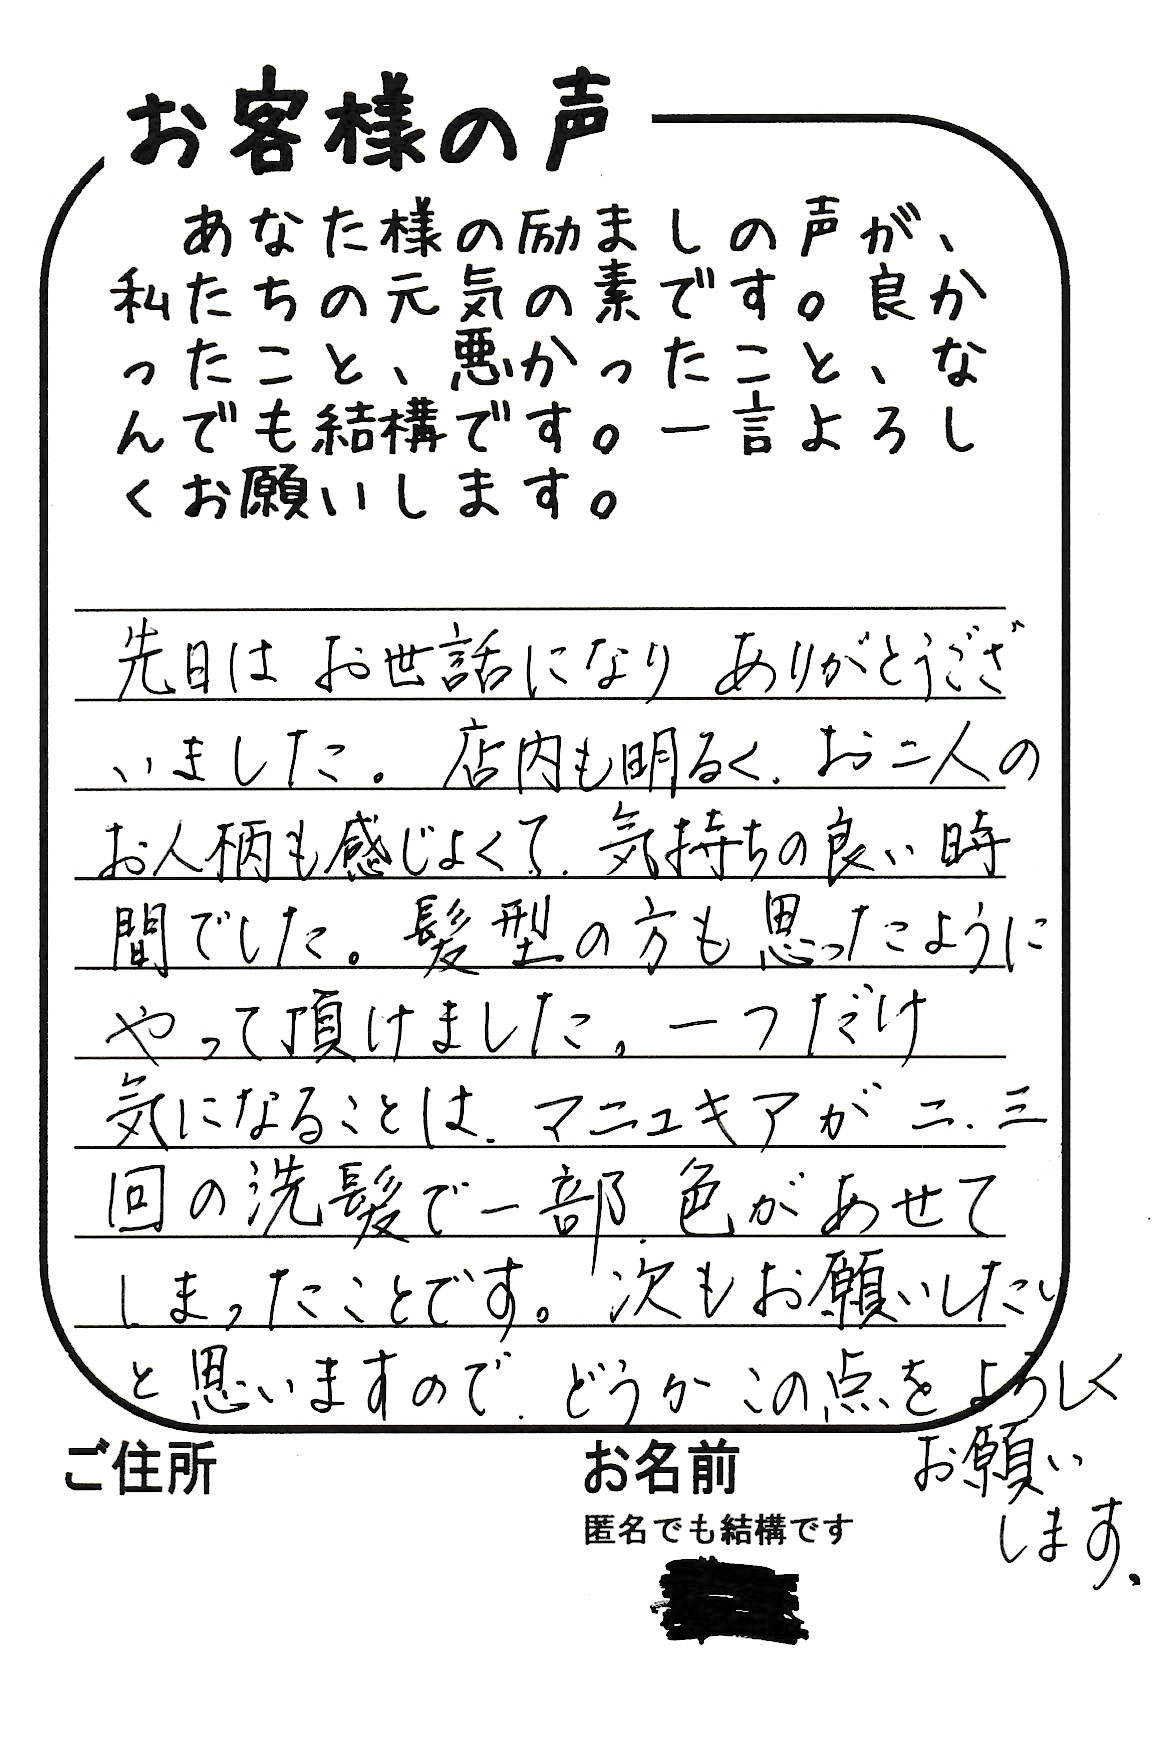 お客様の声
あなた様の励ましの声が、
私たちの元気の素です。良か
ったこと、悪かったこと、な
んでも結構です。一言よろし
くお願いします。
先日は お世話になり ありがとうござ
いました。 店内も明るく、お二人の
お人柄も感じよくて、気持ちの良い時
間でした。髪型の方も思ったように
やって頂けました。一つだけ
気になることは、マニュキアが二、三
回の洗髪で一部、色があせて
しまったことです。次もお願いしたい
と思いますので、どうかこの点をよろしく
お願い
します。
ご住所
お名前
匿名でも結構です